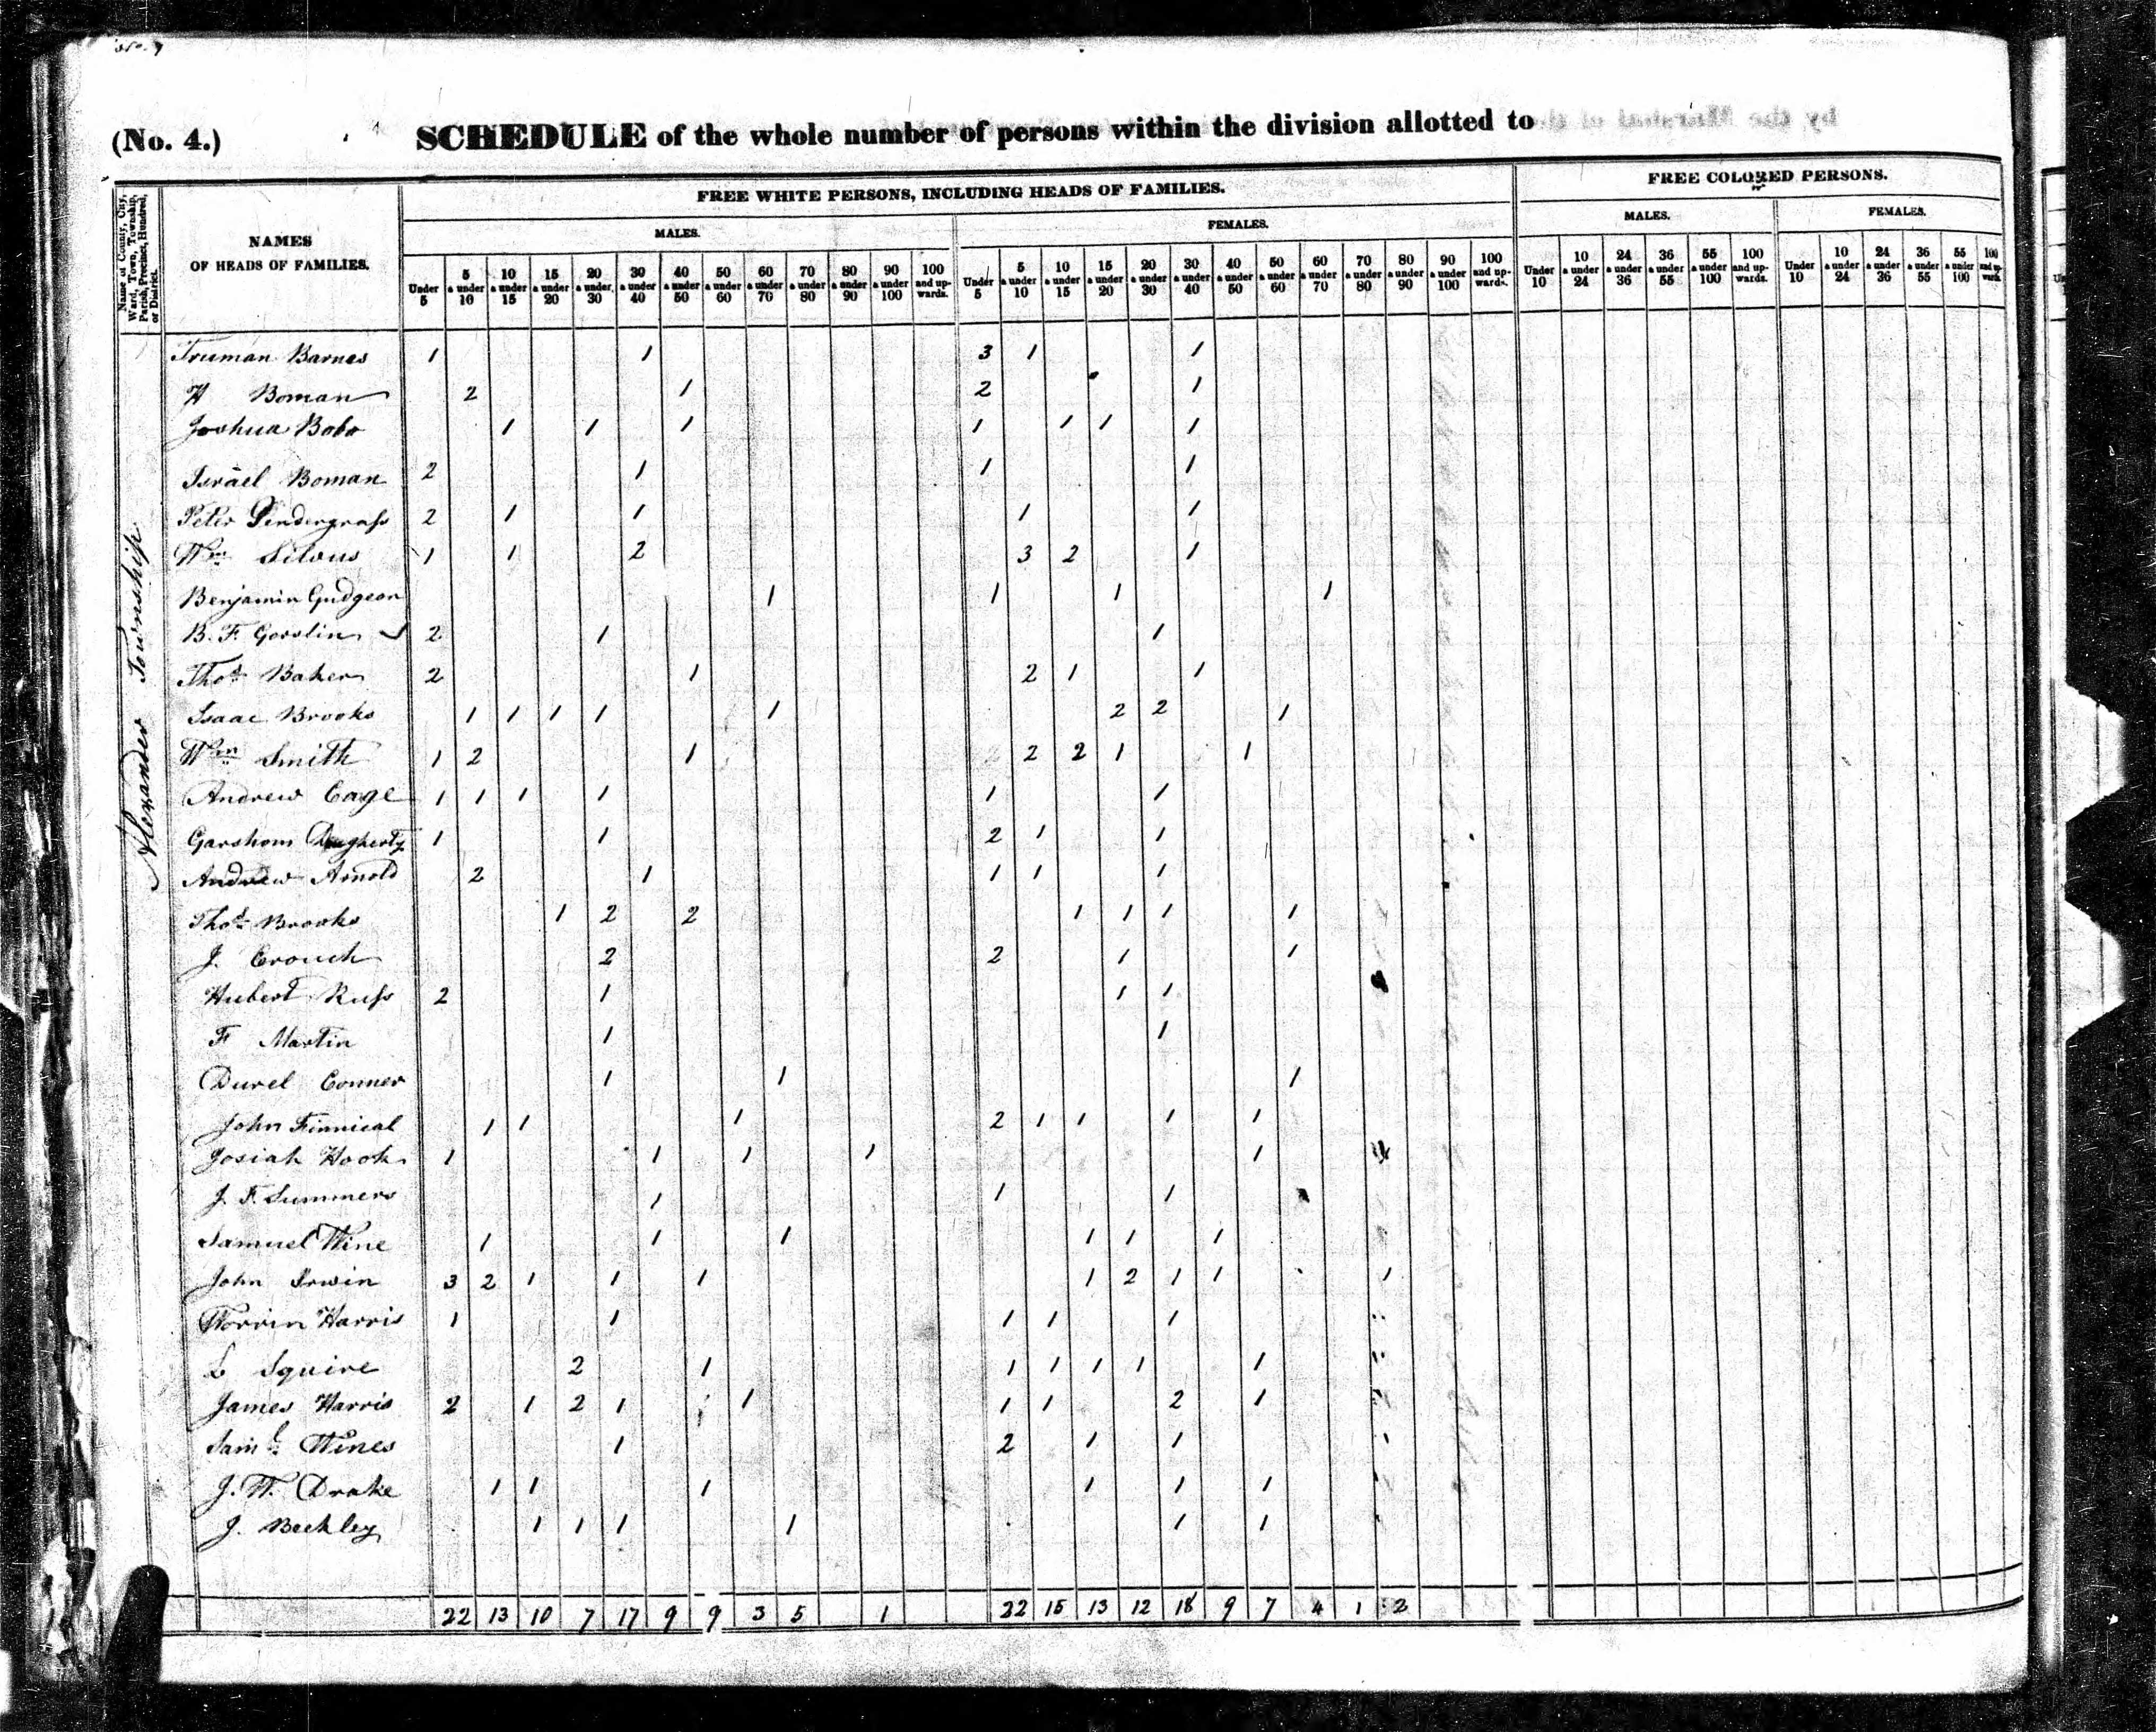 (No. 4.)
SCHEDULE of the whole number of persons within the division allotted to
by the Marshal of the
Name of County, City, Ward, Town, Township, Parish, Precinct, Hundred, or District.
NAMES OF HEADS OF FAMILIES.
FREE WHITE PERSONS, INCLUDING HEADS OF FAMILIES.
FREE COLORED PERSONS.
MALES. FEMALES. MALES. FEMALES.
Under 5 5 & under 10 10 & under 15 15 & under 20 20 & under 30 30 & under 40 40 & under 50 50 & under 60 60 & under 70 70 & under 80 80 & under 90 90 & under 100 100 and upwards.
Under 5 5 & under 10 10 & under 15 15 & under 20 20 & under 30 30 & under 40 40 & under 50 50 & under 60 60 & under 70 70 & under 80 80 & under 90 90 & under 100 100 and upwards.
Under 10 10 & under 24 24 & under 36 36 & under 55 55 & under 100 100 and upwards.
Under 10 10 & under 24 24 & under 36 36 & under 55 55 & under 100 100 and upwards.
Alexander Township
Truman Barnes 1 1 3 1 1
H Boman 2 1 2 1
Joshua Bobo 1 1 1 1 1 1 1
Israel Boman 2 1 1 1
Peter Pendergrass 2 1 1 1 1
Wm Silvus 1 1 2 3 2 1
Benjamin Gudgeon 1 1 1 1
B. F. Goslin 2 1 1
Thos Baker 2 1 2 1 1
Isaac Brooks 1 1 1 1 1 2 2 1
Wm Smith 1 2 1 2 2 1 1
Andrew Cage 1 1 1 1 1 1
Garshom Daugherty 1 1 2 1 1
Andrew Arnold 2 1 1 1 1
Thos Brooks 1 2 2 1 1 1 1
J. Crouch 2 2 1 1
Hubert Russ 2 1 1 1
F Martin 1 1
Durel Conner 1 1 1
John Finnical 1 1 1 2 1 1 1 1
Josiah Hook 1 1 1 1 1
J. F. Summers 1 1 1
Samuel Wine 1 1 1 1 1 1
John Irwin 3 2 1 1 1 1 2 1 1 1
Harris 1 1 1 1 1
Squire 2 1 1 1 1 1 1
James Harris 2 1 2 1 1 1 1 2 1
Saml Wines 1 2 1 1
J. W. Drake 1 1 1 1 1 1
J. Beckley 1 1 1 1 1 1
22 13 10 7 17 9 9 3 5 1 22 15 13 12 18 9 7 4 1 2